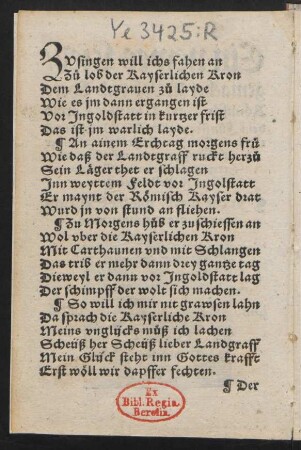 Ye 3425:R
Zvsingen will ichs fahen an
Zů lob der Kayserlichen Kron
Dem Landtgrauen zů layde
Wie es jm dann ergangen ist
Vor Ingoldstatt in kurtzer frist
Das ist jm warlich layde.
¶ An ainem Erchtag morgens frů
Wie daß der Landtgraff ruckt herzů
Sein Läger thet er schlagen
Inn weyttem Feldt vor Ingolstatt
Er maynt der Römisch Kayser drat
Wurd jn von stund an fliehen.
¶ Zů Morgens hůb er zůschiessen an
Wol vber die Kayserlichen Kron
Mit Carthaunen vnd mit Schlangen
Das trib er mehr dann drey gantze tag
Dieweyl er dann vor Ingoldstatt lag
Der schimpff der wolt sich machen.
¶ So will ich mir nit grawsen lahn
Da sprach die Kayserliche Kron
Meins vnglücks můß ich lachen
Scheüß her Scheüß lieber Landgraff
Mein Glück steht inn Gottes krafft
Erst wöll wir dapffer fechten.
¶ Der
Ex
Bibl. Regia
Berolin.